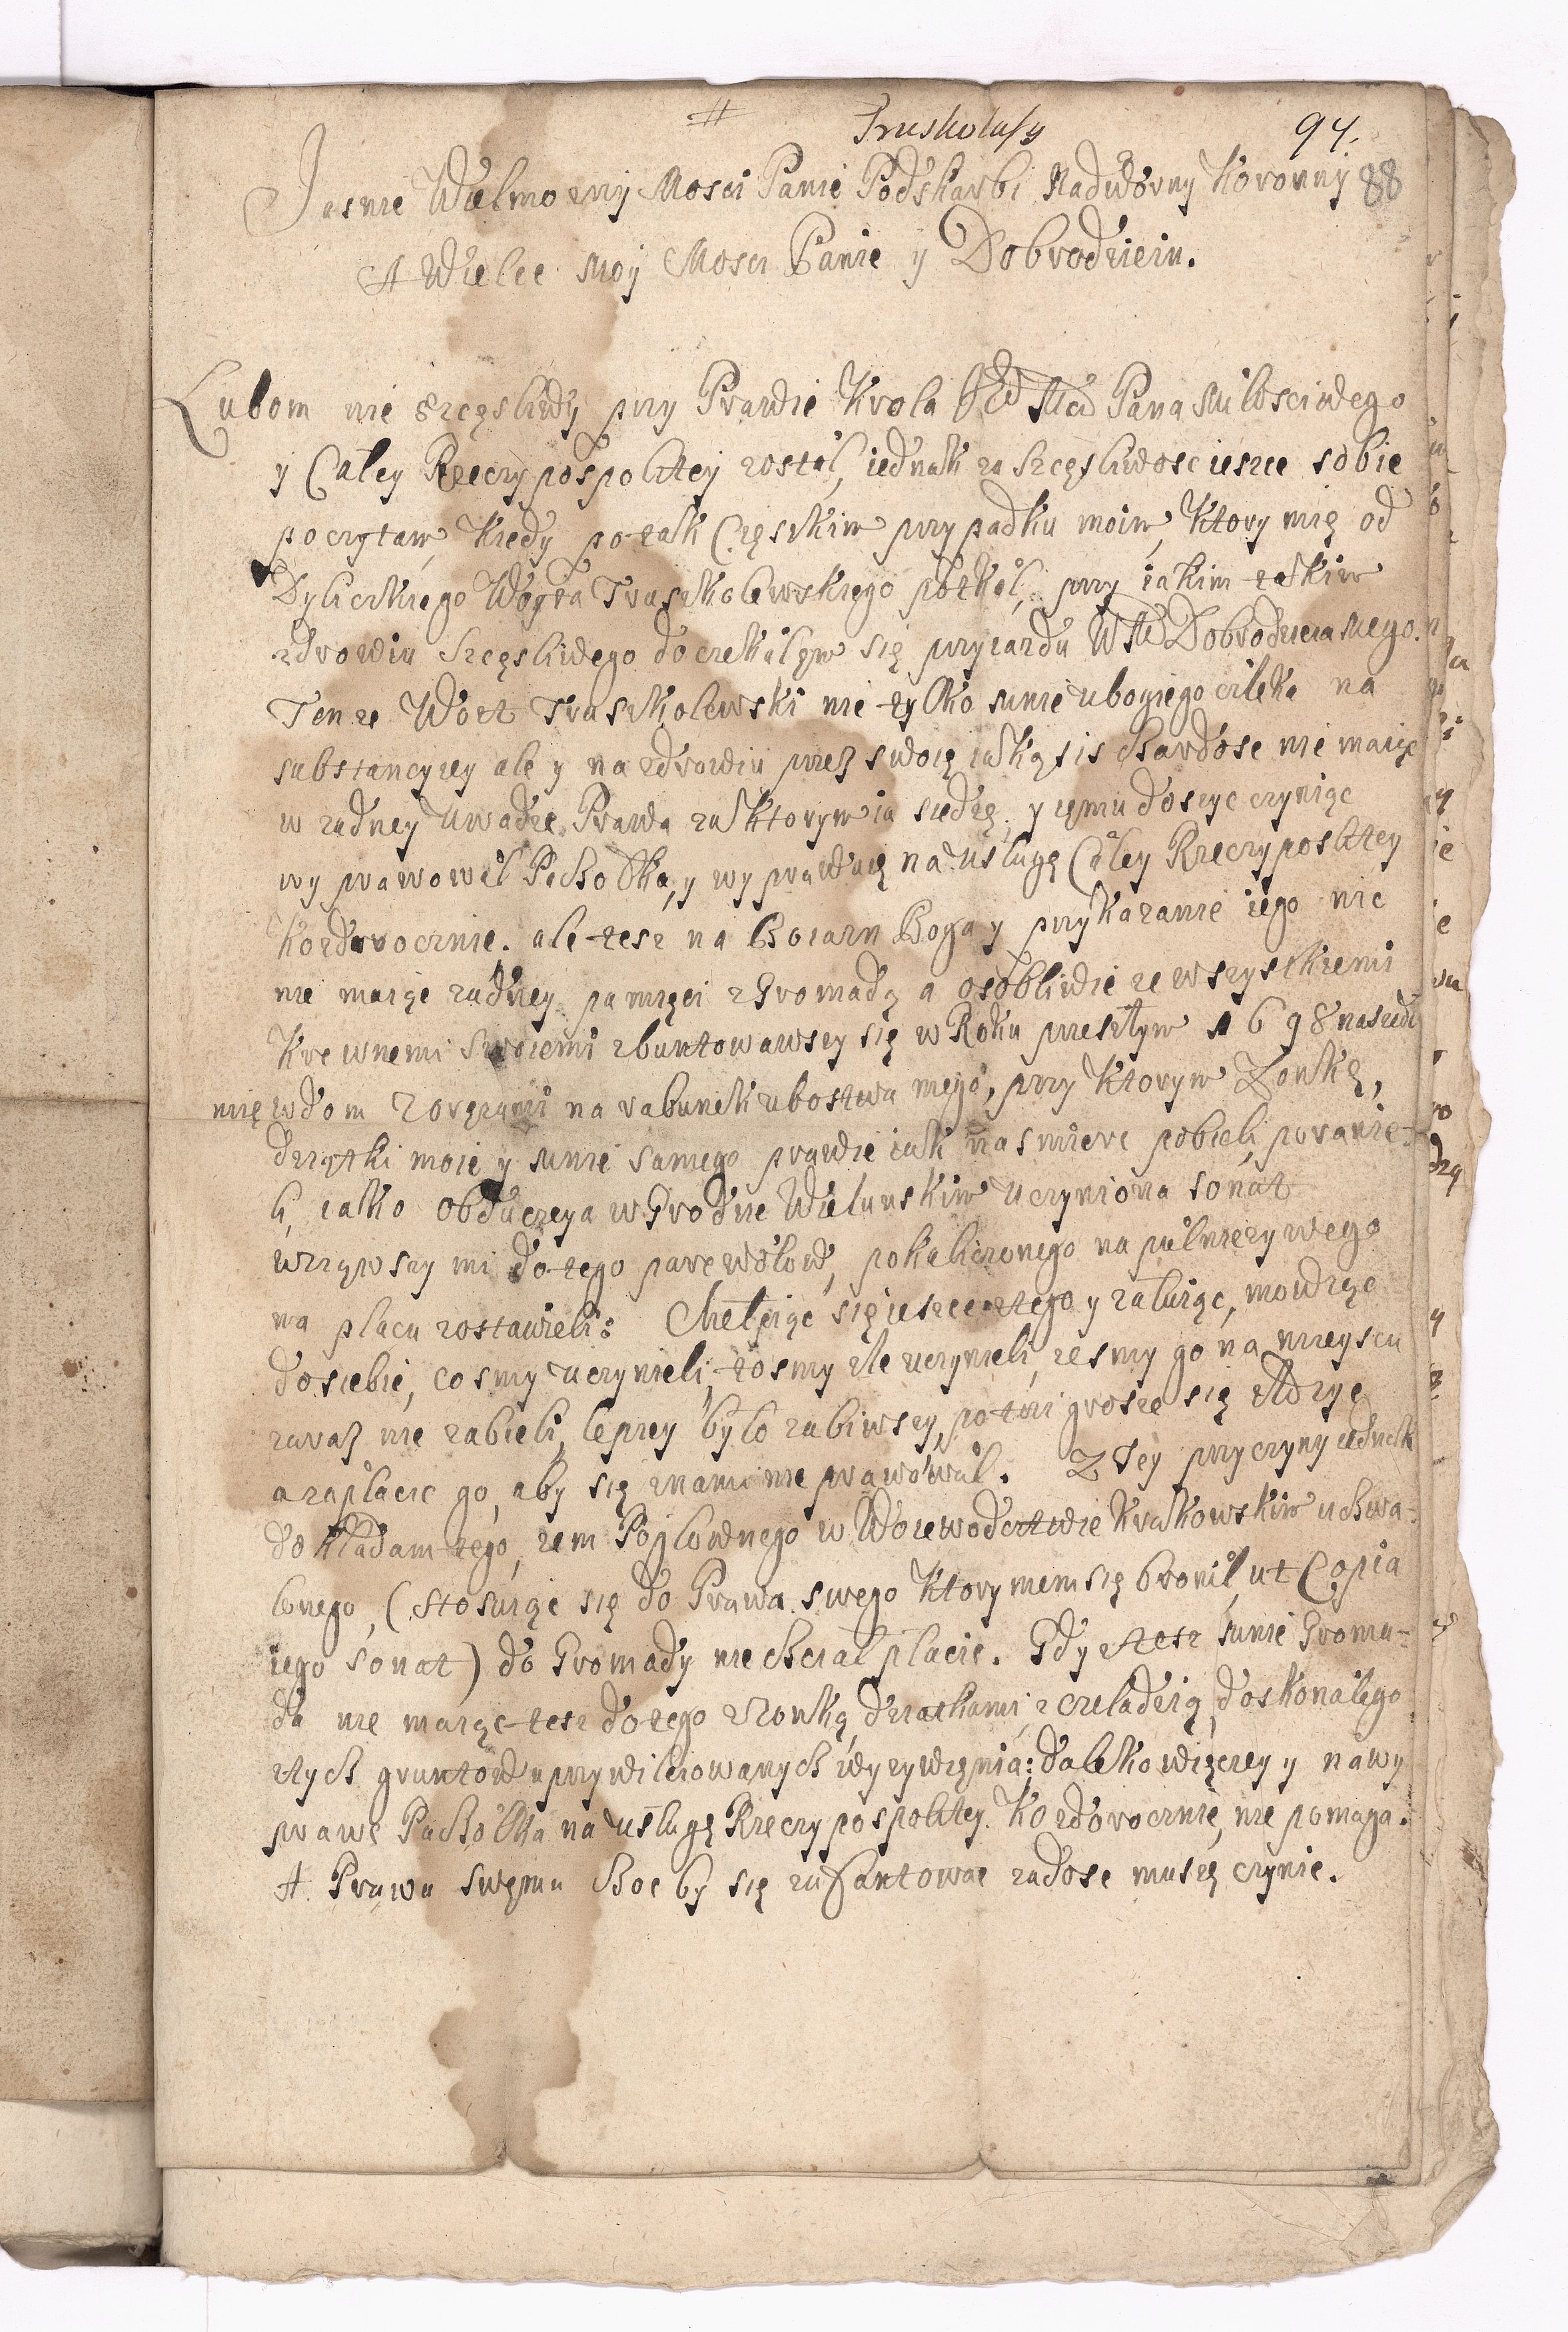 # Truskolasy 94.
Jasnie Wielmozny Mosci Panie Podskarbi Nadworny Koronny 88
A Wielce moy Mosci Panie y Dobrodzieiu.
Lubom nie szczęsliwy przy Prawie Krola Je° Mci Pana Miłosciwego
y Całey Rzeczypospolitey został, iednak za Szczęsliwosc ieszce sobie
poczytam, kiedy po tak Cięszkim przypadku moim, ktory mię od
Wòyta Truszkolewskiego potkał, przy iakim takim
zdrowiu Szczęsliwego doczekałęm się przyiazdu W M Dobrodzieia mego.
Tenze Wòit Truszkolewski nie tylko mnie ubogiego człeka na
substancyiey ale y na zdrowiu przez swoię iakąsis chardosc nie maiąc
w zadney uwadze Prawa za ktorym ia siedzę, y iemu dosczyc czyniąc
wyprawowàł Pachołka, y wyprawuię na usługę Całey Rzeczyposlitey
kozdorocznie. ale tesz na Boiazn Boga y przykazanie iego nic
nie maiąc zadney pamięci z Gromadą a osobliwie ze wszystkiemi
Krewnemi swoiemi zbuntowawszy się w Roku przeszłym 1698 naszedł
mię w dom z oręzami na rabunek ubostwa mego, przy ktorym Zonkę,
dziątki moie y mnie samego prawie iak na smierc pobieli, poranie-
li, iako obdukcyja w Grodzie Wielunskim uczyniona sonat
wziąwszy mi do tego parę wołow, pokaliczonego na puł niezywego
na placu zostawieli: Chełpiąc się ieszcze z tego y załuiąc, mowiąc
do siebie, co smy uczynieli, tosmy zle uczynieli, ze smy go na mieyscu
zaraz nie zabieli, lepiey było zabiwszy, po trzi grosze się złozyc
a zapłacic go, aby się znami nie prawował. Z Tey przyczyny iednak
dokładam tego, zem Pogłownego w Woiewodcztwie Krakowskim uchwa-
lonego, (stosuiąc się do Prawa swego ktorymem się bronił, ut Copia
iego sonat) do Gromady nie chciał płacic. Gdysz tesz mnie Groma-
da nie maiąc tesz do tego z zonką, dziatkami, z czeladzią, doskonałego
ztych gruntow uprzywileiowanych wyzywięnia: daleko więcey y na wy
prawę Pachołka na usługę Rzeczypospolitey kozdorocznie, nie pomaga.
A Prawu swęmu choc by się zafantowac zadosc muszę czynic.